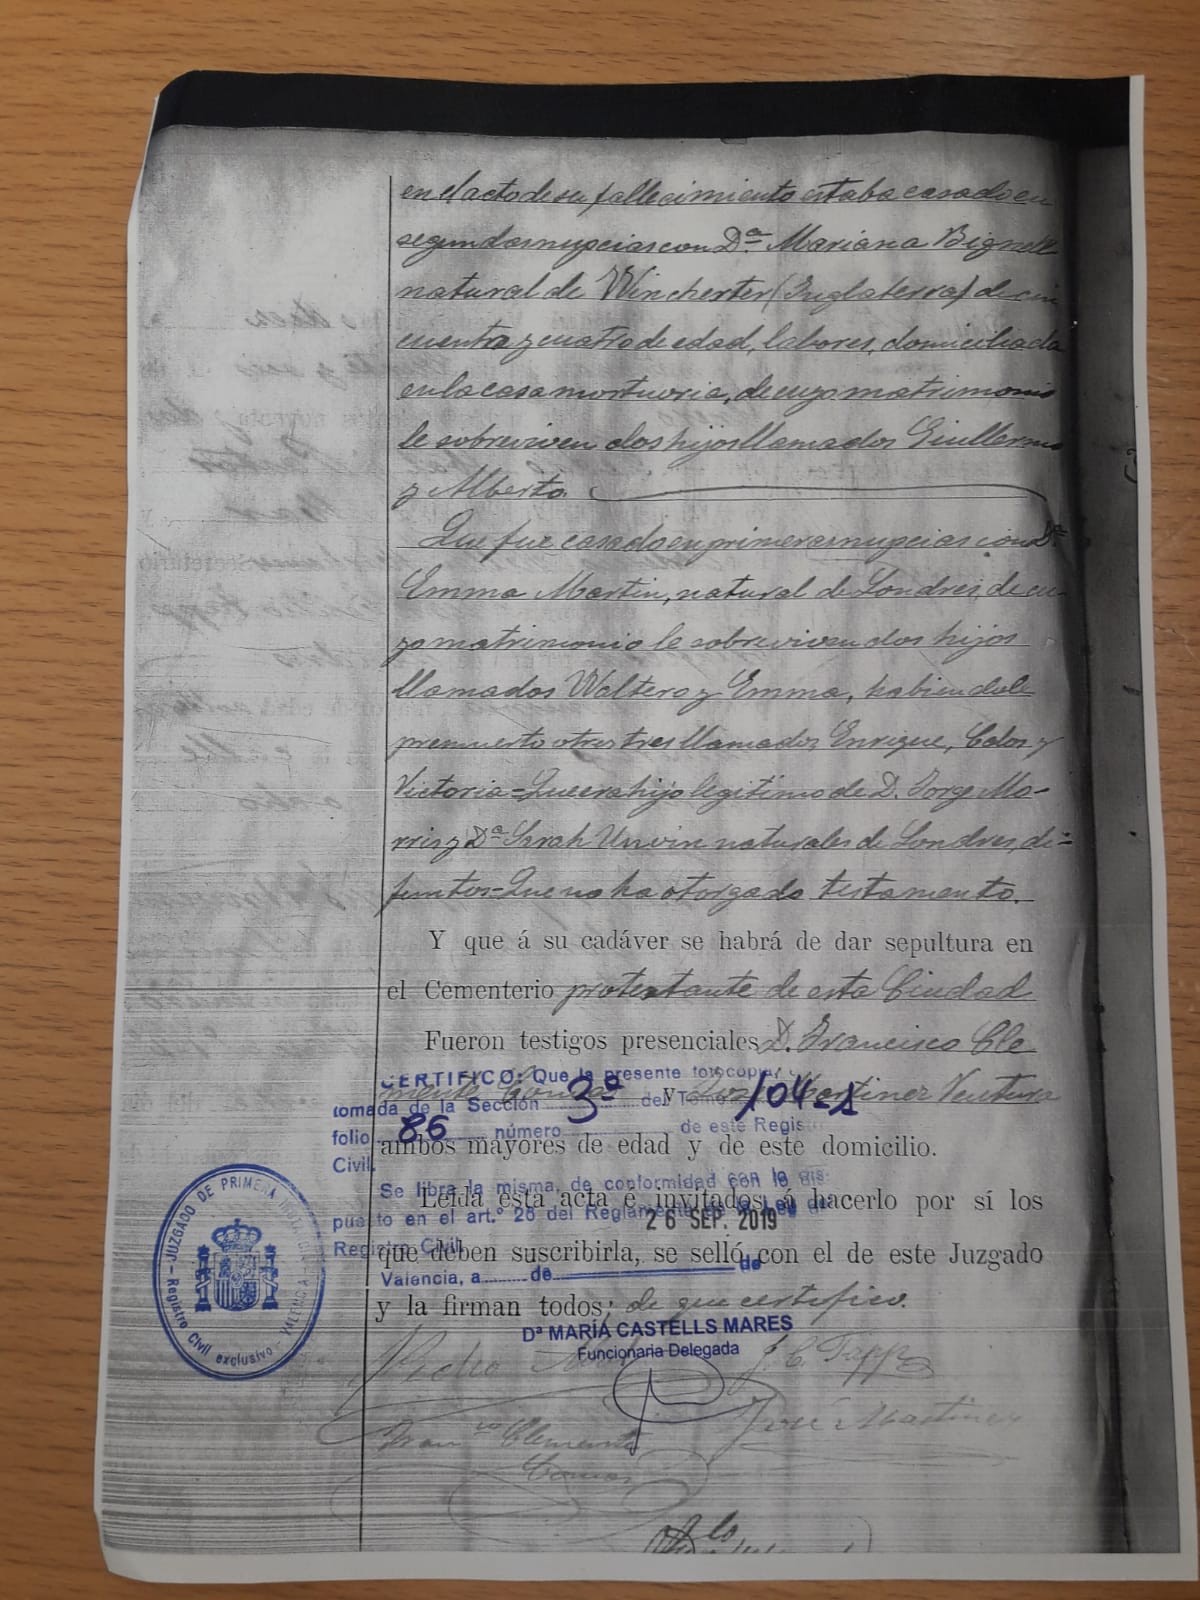 en el acto de su fallecimiento estaba casado en
segundas nupcias con Dª Mariana Bignell
natural de Winchester (Inglaterra) de cin
cuenta y cuatro de edad, labores, domiciliada
en la casa mortuoria, de cuyo matrimonio
le sobreviven dos hijos llamados Guillermo
y Alberto.
Que fue casado en primeras nupcias con Dª
Emma Martin, natural de Londres, de cu-
yo matrimonio le sobreviven dos hijos
llamados Waltero y Emma, habiendole
premuerto otros tres llamados Enrique, y
Victoria = Que era hijo legitimo de D. Jorge Mo-
rris y Dª Sarah Unwin naturales de Londres, di-
funtos = Que no ha otorgado testamento.
Y que á su cadáver se habrá de dar sepultura en
el Cementerio protestante de esta Ciudad
Fueron testigos presenciales D. Francisco Cle
mente y José Martinez Ventura
ambos mayores de edad y de este domicilio.
Leída esta acta é invitados á hacerlo por sí los
que deben suscribirla, se selló con el de este Juzgado
y la firman todos; de que certifico.
J. C. Tapp
José Martinez
Franco Clemente
CERTIFICO: Que la presente fotocopia
tomada de la Sección 3ª del Tomo 104-1
folio 86 número de este Regis
Civil.
Se libra la misma, de conformidad con lo dis
puesto en el art.º 26 del Reglamento de la Ley de
Registro Civil
26 SEP. 2019
Valencia, a de de
Dª MARÍA CASTELLS MARES
Funcionaria Delegada
JUZGADO DE PRIMERA VALENCIA
Registro Civil exclusivo